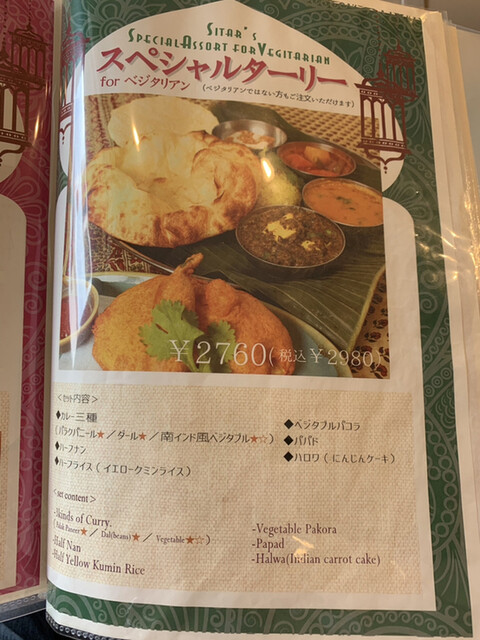 SITAR'S
SPECIAL ASSORT FOR VEGITARIAN
スペシャルターリー
for ベジタリアン (ベジタリアンではない方もご注文いただけます)
¥2760(税込¥2980)
<セット内容>
◆カレー三種
(パラクパニール★/ダール★/南インド風ベジタブル★☆)
◆ハーフナン
◆ハーフライス(イエロークミンライス)
◆ベジタブルパコラ
◆パパド
◆ハロワ(にんじんケーキ)
<set content>
-3kinds of Curry.
(Palak Paneer★/Dal(beans)★/Vegetable★☆)
-Half Nan
-Half Yellow Kumin Rice
-Vegetable Pakora
-Papad
-Halwa(Indian carrot cake)